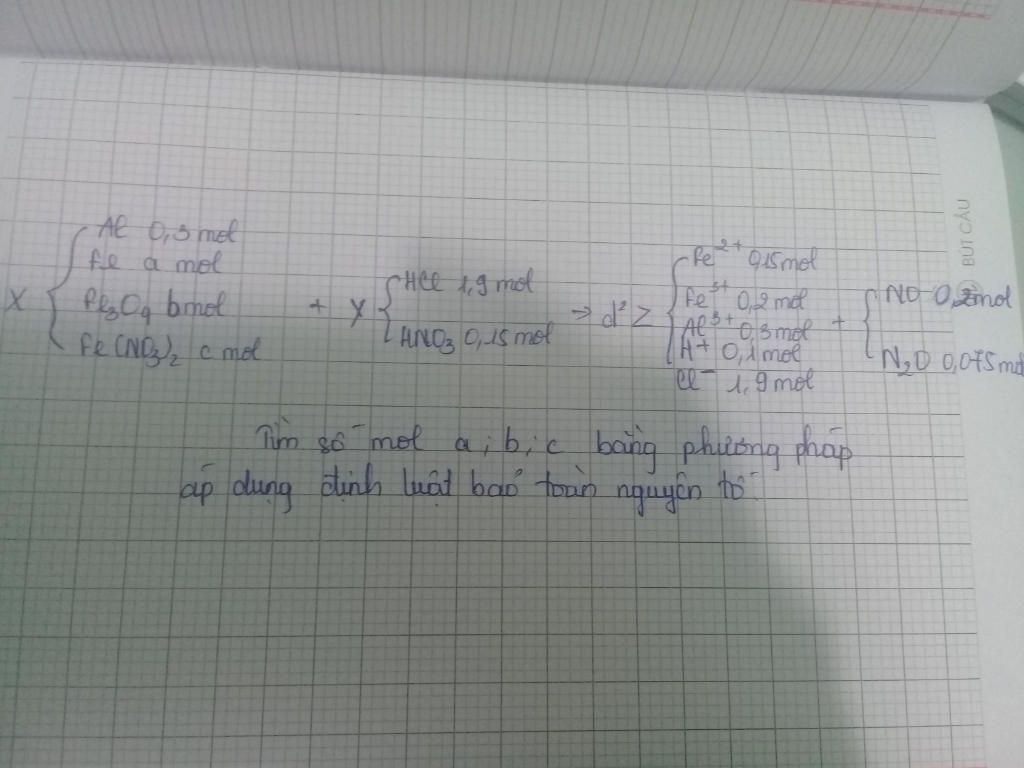 Al 0,3 mol
Fe a mol
X
Fe3O4 b mol
Fe(NO3)2 c mol
+ Y
HCl 1,9 mol
HNO3 0,15 mol
→ d² Z
Fe2+ 0,15 mol
Fe3+ 0,2 mol
Al3+ 0,3 mol
H+ 0,1 mol
Cl- 1,9 mol
+
NO mol
N2O 0,075 mol
Tìm số mol a; b; c bằng phương pháp
áp dụng định luật bảo toàn nguyên tố
BÚT CẦU